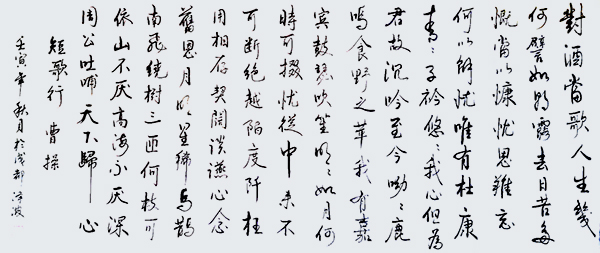 對酒當歌人生幾
何譬如朝露去日苦多
慨當以慷忧思難忘
何以解忧唯有杜康
青々子衿悠々我心但為
君故沉吟至今呦々鹿
鳴食野之苹我有嘉
賓鼓瑟吹笙明々如月何
時可掇忧從中来不
可断絕越陌度阡枉
用相存契闊談讌心念
舊恩月明星稀烏鵲
南飛繞樹三匝何枝可
依山不厌高海不厌深
周公吐哺天下歸心
短歌行 曹操
壬寅年秋月於成都